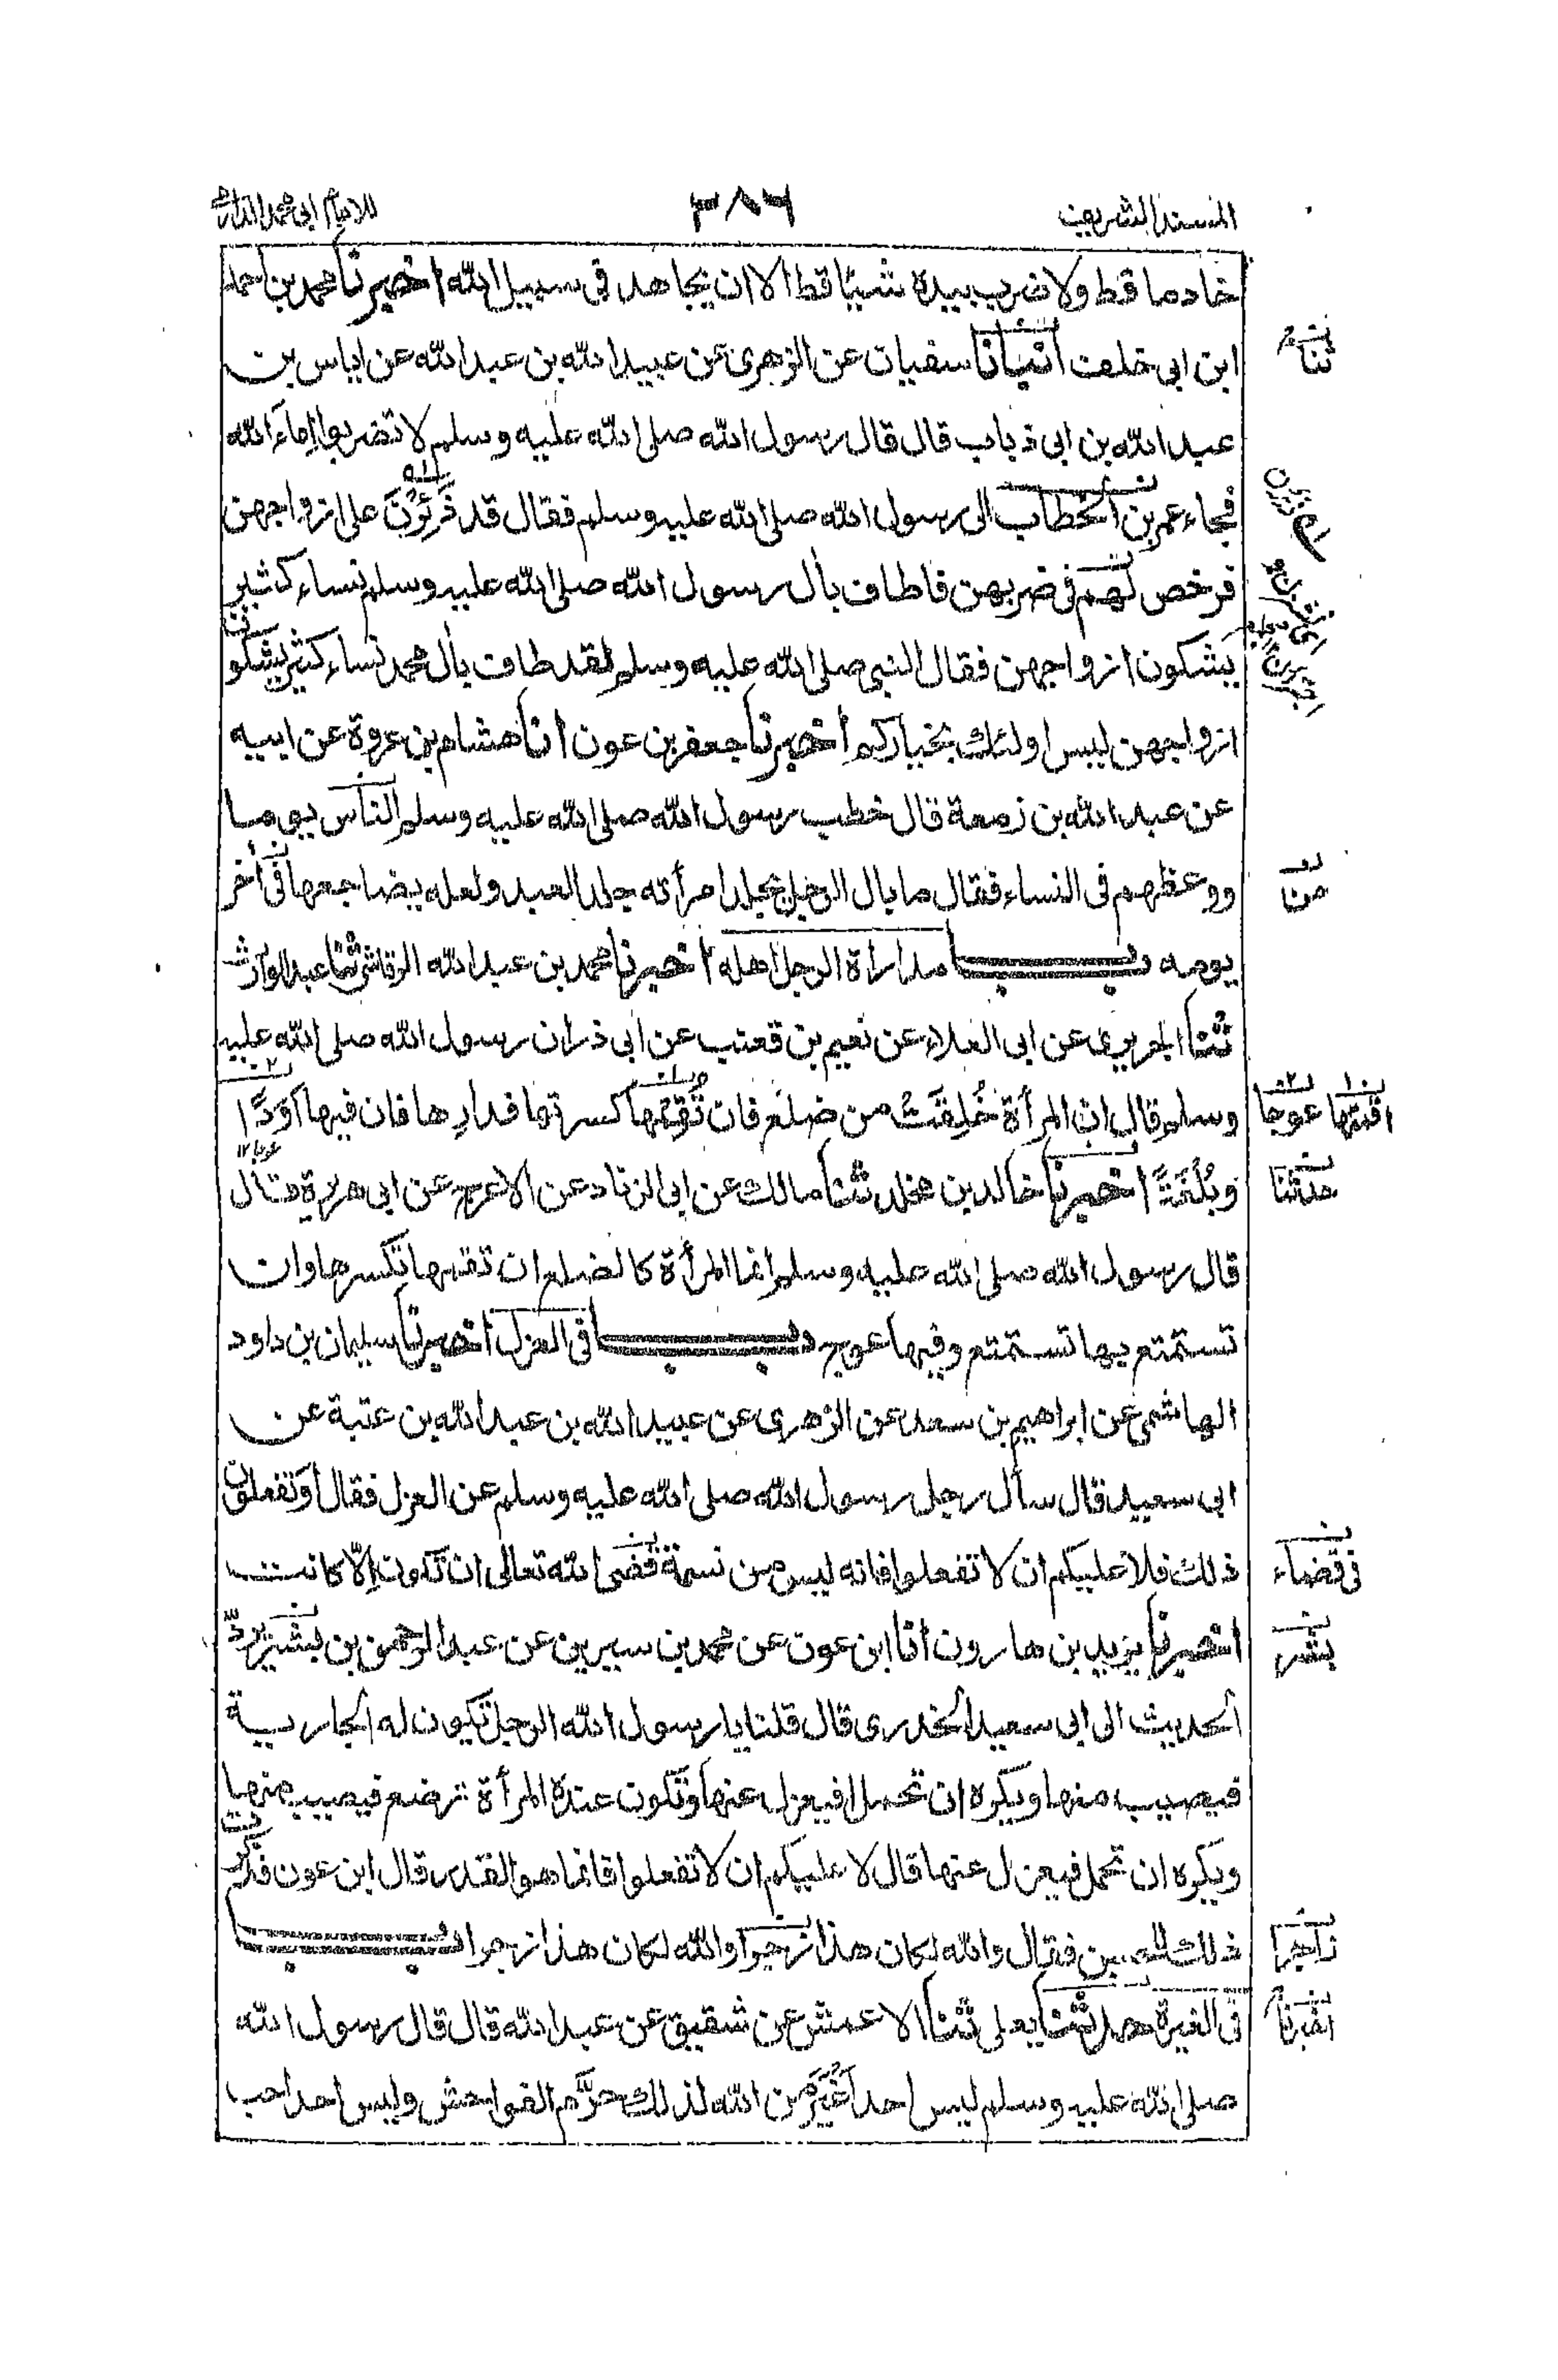 المسند الشريف
٣٨٦
للامام ابى محمد الدارمى
خادما قط ولا ضرب بيده شيئا قط الا ان يجاهد فى سبيل الله اخبرنا محمد بن احمد
ابن ابى خلف انبانا سفيان عن الزهرى عن عبيد الله بن عبد الله عن اياس بن
ثنا
عبد الله بن ابى ذباب قال قال رسول الله صلى الله عليه وسلم لا تضربوا اِماءَ الله
فجاء عمر بن الخطاب الى رسول الله صلى الله عليه وسلم فقال قد ذَئِرْنَ على ازواجهن
فرخص لهم فى ضربهن فاطاف بآل رسول الله صلى الله عليه وسلم نساء كثير
يشكون ازواجهن فقال النبى صلى الله عليه وسلم لقد طاف بآل محمد نساء كثير يشكون
ازواجهن ليس اولئك بخياركم اخبرنا جعفر بن عون انا هشام بن عروة عن ابيه
عن عبد الله بن زمعة قال خطب رسول الله صلى الله عليه وسلم الناس يوما
ووعظهم فى النساء فقال ما بال الرجل يجلد امرأته جلد العبد ولعله يضاجعها فى أخر
من
يومه باب مداراة الرجل اهله اخبرنا محمد بن عبد الله الرقاشى ثنا عبد الوارث
ثنا الجريرى عن ابى العلاء عن نعيم بن قعنب عن ابى ذر ان رسول الله صلى الله عليه
وسلم قال ان المرأة خُلِقَتْ من ضلع فان تُقِمْها كسرتها فدارِها فان فيها اَوَدًا
اقمتها عوجا
عوجا ١٢
وبُلْغَةً اخبرنا خالد بن مخلد ثنا مالك عن ابى الزناد عن الاعرج عن ابى هريرة قال
حدثنا
قال رسول الله صلى الله عليه وسلم انما المرأة كالضلع ان تقمها تكسرها وان
تستمتع بها تستمتع وفيها عوج باب فى العزل اخبرنا سليمان بن داود
الهاشمى عن ابراهيم بن سعد عن الزهرى عن عبيد الله بن عبد الله بن عتبة عن
ابى سعيد قال سأل رجل رسول الله صلى الله عليه وسلم عن العزل فقال اَوَتفعلون
ذلك فلا عليكم ان لا تفعلوا فانه ليس من نسمة قضى الله تعالى ان تكون اِلّا كانت
فى قضاء
اخبرنا يزيد بن هارون انا ابن عون عن محمد بن سيرين عن عبد الرحمن بن بشير يردّ
بشر
الحديث الى ابى سعيد الخدرى قال قلنا يا رسول الله الرجل تكون له الجارية
فيصيب منها ويكره ان تحمل افيعزل عنها وتكون عنده المرأة ترضع فيصيب منها
ويكره ان تحمل فيعزل عنها قال لا عليكم ان لا تفعلوا فانما هو القدر قال ابن عون فذكرت
ذلك للحسن فقال والله لكان هذا زجرا والله لكان هذا زجرا باب
زاجرا
فى الغيرة حدثنا يعلى ثنا الاعمش عن شقيق عن عبد الله قال قال رسول الله
اخبرنا
صلى الله عليه وسلم ليس احد اَغْيَرَ من الله لذلك حرّم الفواحش وليس احد احب